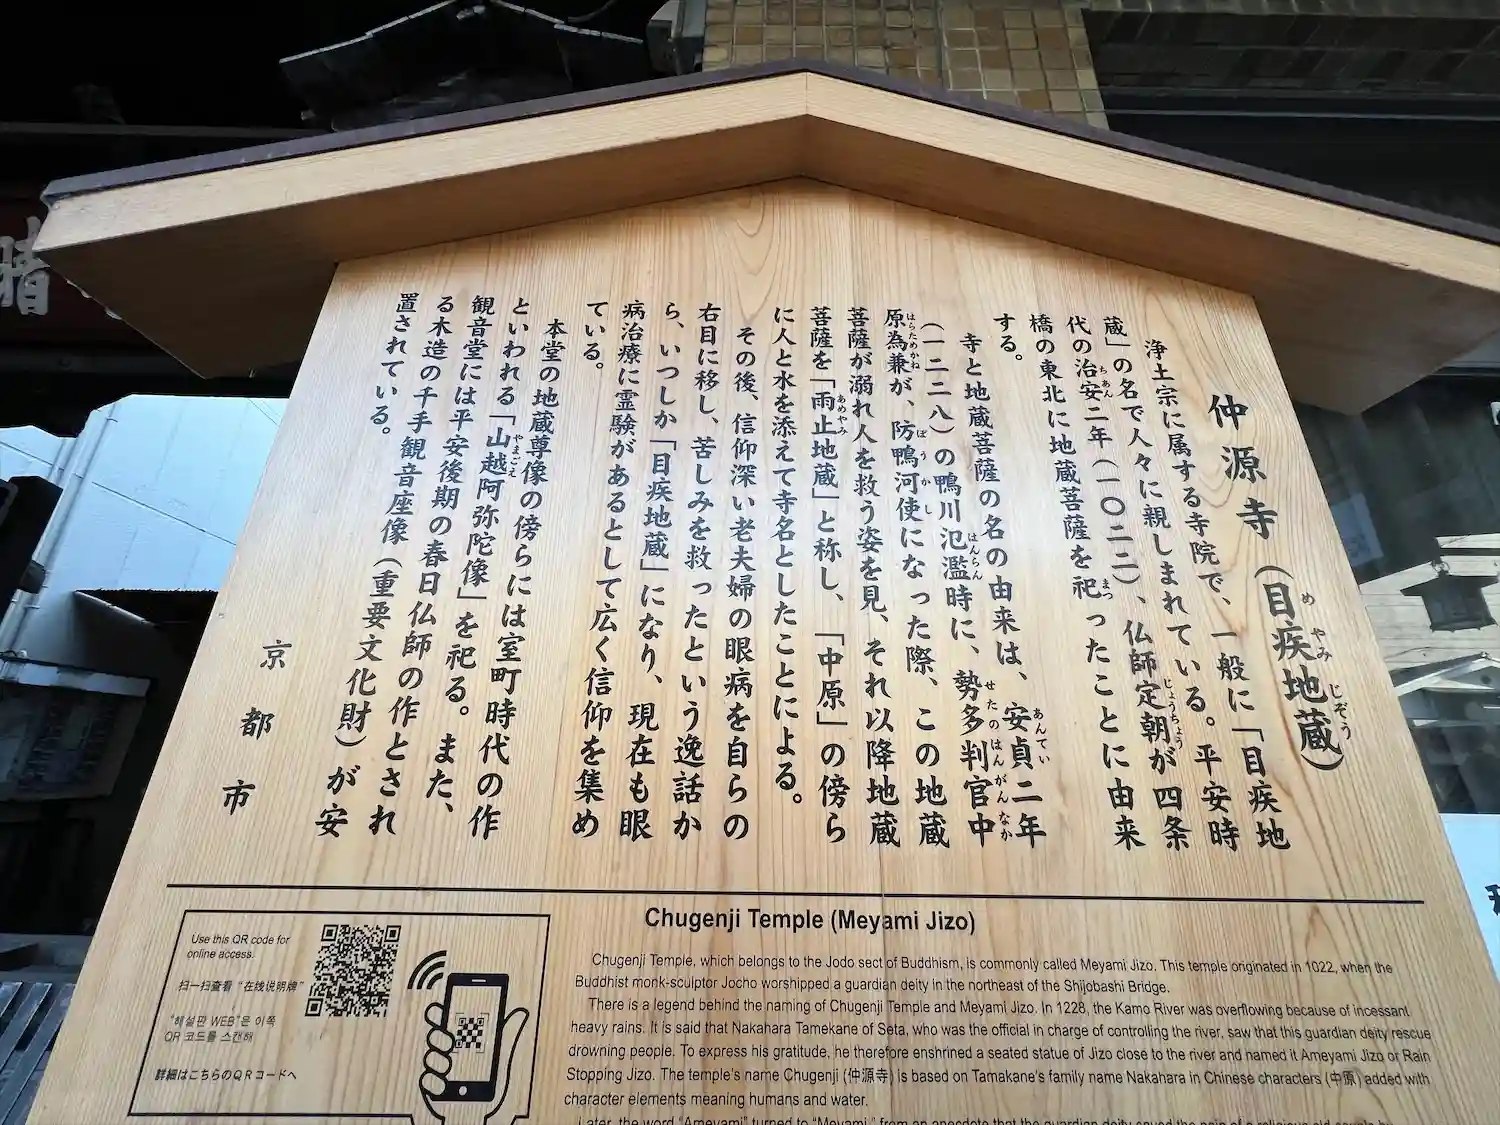 仲源寺（目疾地蔵）
め やみ じぞう
浄土宗に属する寺院で、一般に「目疾地
蔵」の名で人々に親しまれている。平安時
代の治安二年（一〇二二）、仏師定朝が四条
ちあん
じょうちょう
橋の東北に地蔵菩薩を祀ったことに由来
まつ
する。
寺と地蔵菩薩の名の由来は、安貞二年
あんてい
（一二二八）の鴨川氾濫時に、勢多判官中
はんらん
せたのはんがんなか
原為兼が、防鴨河使になった際、この地蔵
はらためかね
ぼうかし
菩薩が溺れ人を救う姿を見、それ以降地蔵
菩薩を「雨止地蔵」と称し、「中原」の傍ら
あめやみ
に人と水を添えて寺名としたことによる。
その後、信仰深い老夫婦の眼病を自らの
右目に移し、苦しみを救ったという逸話か
ら、いつしか「目疾地蔵」になり、現在も眼
病治療に霊験があるとして広く信仰を集め
ている。
本堂の地蔵尊像の傍らには室町時代の作
といわれる「山越阿弥陀像」を祀る。また、
やまごえ
観音堂には平安後期の春日仏師の作とされ
る木造の千手観音座像（重要文化財）が安
置されている。
京都市
Use this QR code for
online access.
扫一扫查看“在线说明牌”
“해설판 WEB”은 이쪽
QR 코드를 스캔해
詳細はこちらのQRコードへ
Chugenji Temple (Meyami Jizo)
Chugenji Temple, which belongs to the Jodo sect of Buddhism, is commonly called Meyami Jizo. This temple originated in 1022, when the
Buddhist monk-sculptor Jocho worshipped a guardian deity in the northeast of the Shijobashi Bridge.
There is a legend behind the naming of Chugenji Temple and Meyami Jizo. In 1228, the Kamo River was overflowing because of incessant
heavy rains. It is said that Nakahara Tamekane of Seta, who was the official in charge of controlling the river, saw that this guardian deity rescue
drowning people. To express his gratitude, he therefore enshrined a seated statue of Jizo close to the river and named it Ameyami Jizo or Rain
Stopping Jizo. The temple's name Chugenji (仲源寺) is based on Tamakane's family name Nakahara in Chinese characters (中原) added with
character elements meaning humans and water.
Later, the word "Ameyami" turned to "Meyami," from an anecdote that the guardian deity saved the pain of a religious old couple by